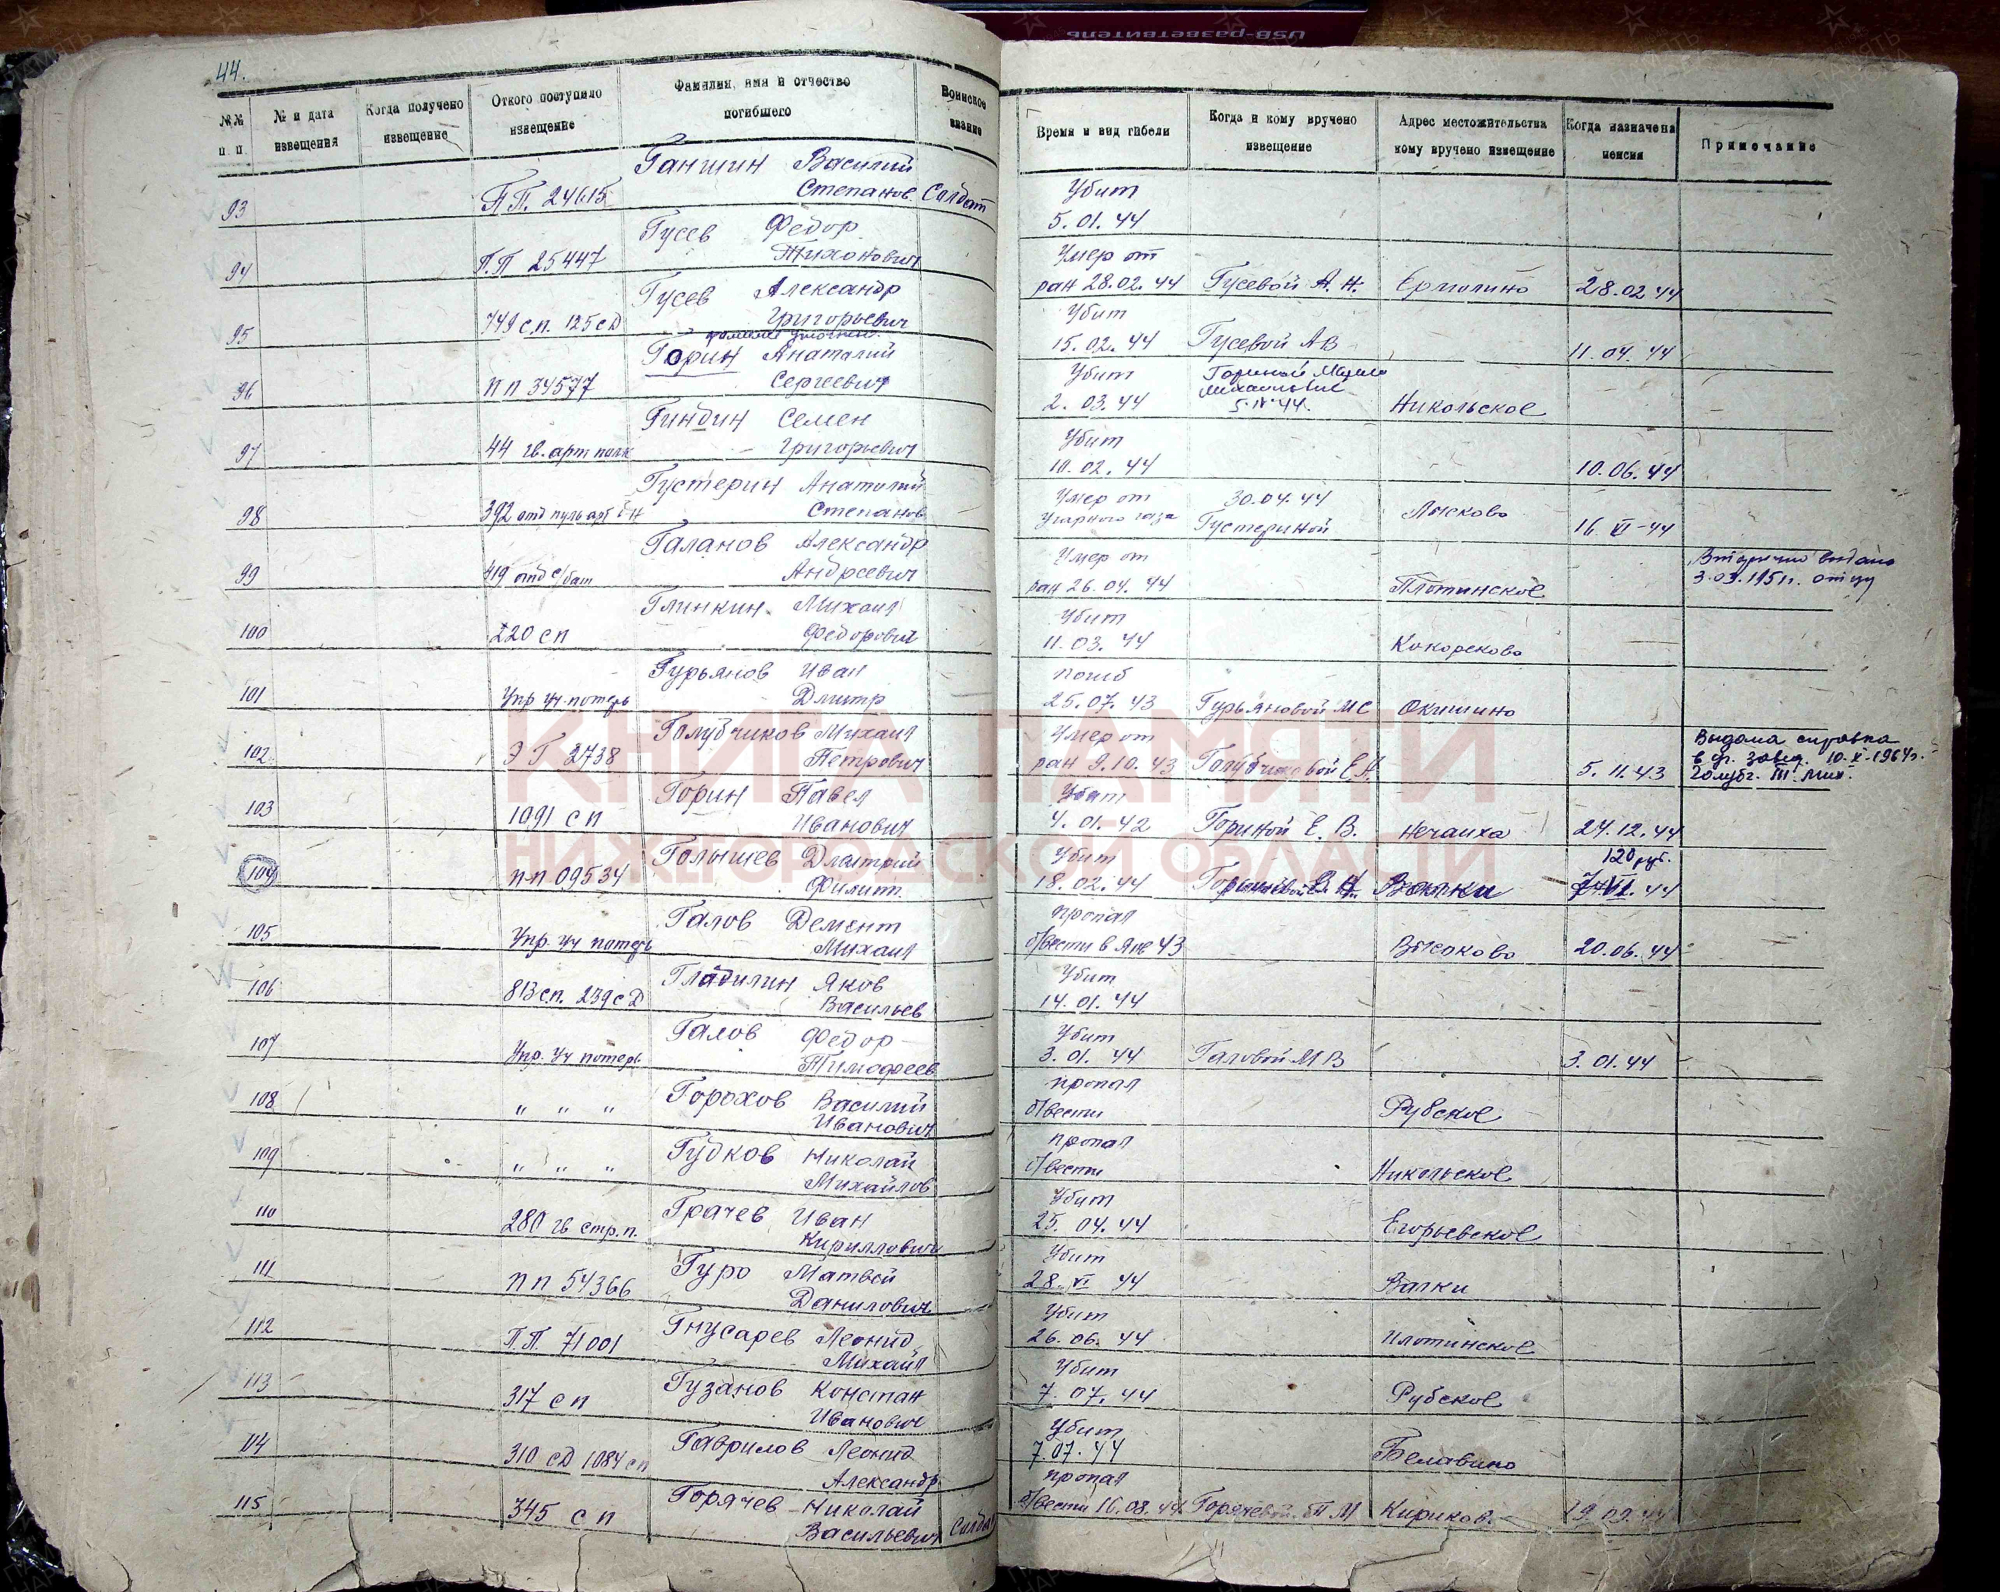 USB-разветвитель
44.
№№ п. п.
№ и дата извещения
Когда получено извещение
Откого поступило извещение
Фамилия, имя и отчество погибшего
Воинское звание
Время и вид гибели
Когда и кому вручено извещение
Адрес местожительства кому вручено извещение
Когда назначена пенсия
Примечание
93 П.П. 24615 Ганшин Василий Степанов. Солдат Убит 5.01.44
94 П.П 25447 Гусев Федор Тихонович Умер от ран 28.02.44 Гусевой А.Н. Ермолино 28.02 44
95 749 с.п. 125 сД Гусев Александр Григорьевич Убит 15.02.44 Гусевой АВ 11.04.44
96 п п 34577 Горин Анатолий Сергеевич Убит 2.03.44 Гориной Марии 5.IV 44. Никольское
97 44 гв. арт полк Гиндин Семен Григорьевич Убит 10.02.44 10.06.44
98 392 отд пульарт б-н Густерин Анатолий Степанов Умер от угарного газа 30.04.44 Густериной Лысково 16.VI-44
99 419 отд с/бат Галанов Александр Андреевич Умер от ран 26.04.44 Плотинское Вторично выдано 3.03.1951г. отцу
100 220 сп Глинкин Михаил Федорович Убит 11.03.44 Кокорсково
101 Упр уч. потерь Гурьянов Иван Дмитр Погиб 25.07.43 Гурьяновой МС Окишино
102 Э Г 2738 Голубчиков Михаил Петрович Умер от ран 9.10.43 Голубчиковой Е.А 5.11.43 Выдана справка 10.X-1964г.
103 1091 сп Горин Павел Иванович Убит 4.01.42 Гориной Е.В. Нечаиха 24.12.44
104 п-п 09534 Голышев Дмитрий Филипп. Убит 18.02.44 Валки 120 руб. 44
105 Упр. уч потерь Галов Демент Михаил пропал б/вести в янв 43 Высоково 20.06.44
106 813 с.п. 239 с Д Гладилин Яков Васильев Убит 14.01.44
107 Упр. уч потерь Галов Федор Тимофеев Убит 3.01.44 Галовой М В 3.01.44
108 " " " Горохов Василий Иванович пропал б/вести Рубское
109 " " " Гудков Николай Михайлов пропал б/вести Никольское
110 280 гв стр. п. Грачев Иван Кириллович Убит 25.04.44 Егорьевское
111 п п 54366 Гуро Матвей Данилович Убит 28.VI 44 Валки
112 П.П. 71001 Гнусарев Леонид Михайл Убит 26.06.44 Плотинское
113 317 сп Гузанов Констан Иванович Убит 7.07.44 Рубское
114 310 сД 1084 сп Гаврилов Леонид Александр Убит 7.07.44 Белавино
115 345 сп Горячев Николай Васильевич Солдат пропал б/вести 16.08.44 Горячевой П М Кириков. 19.09.44
КНИГА ПАМЯТИ
НИЖЕГОРОДСКОЙ ОБЛАСТИ